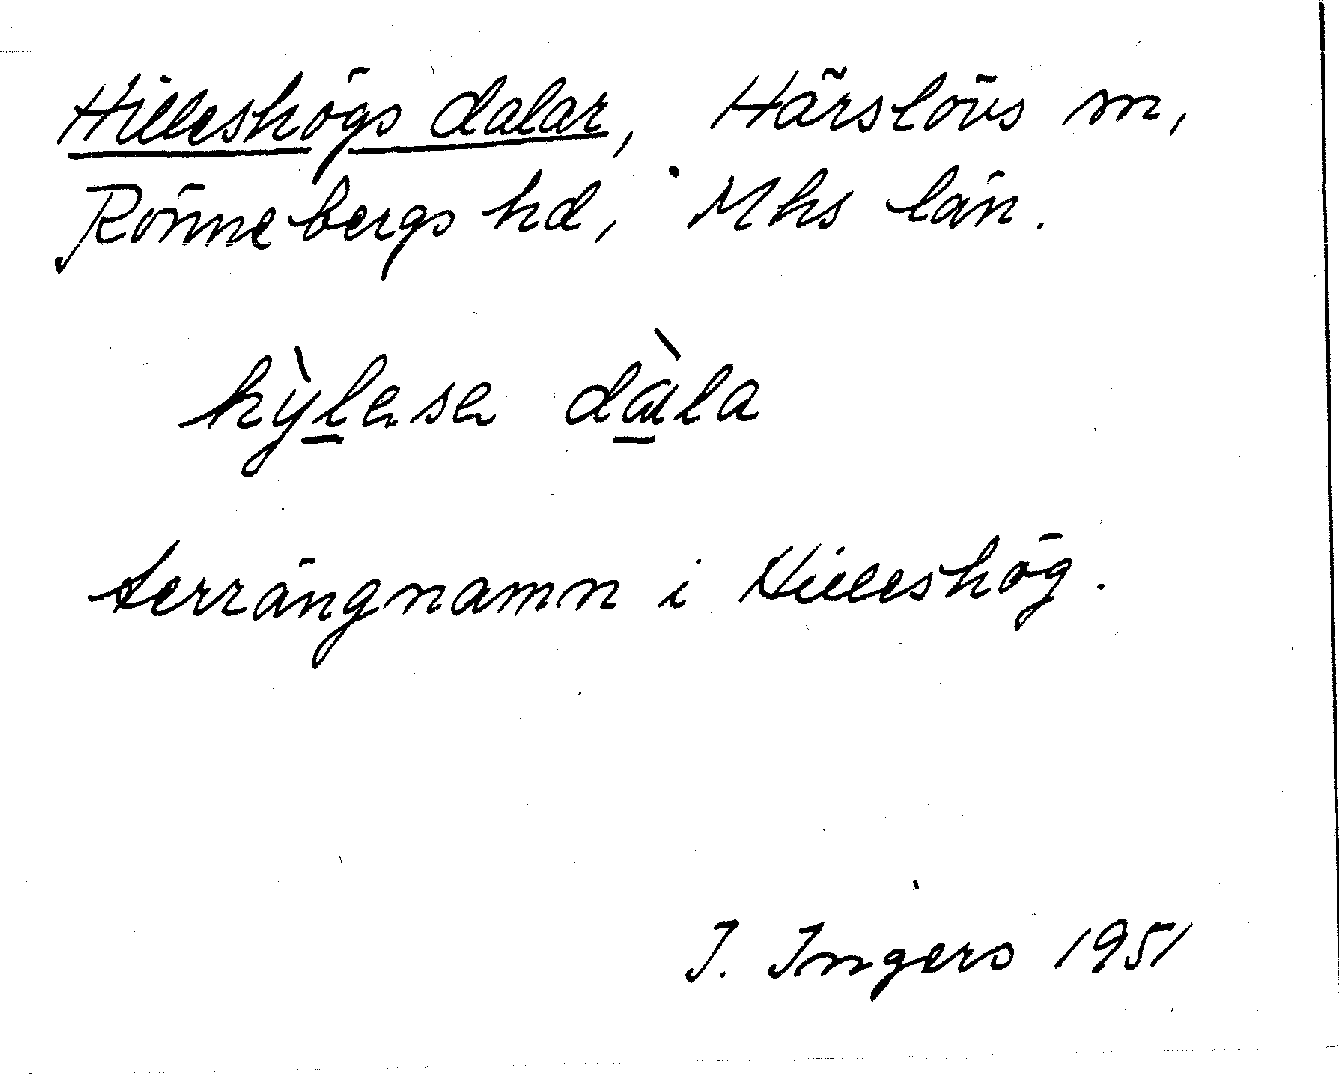 Hilleshögs dalar, Härslövs sn,
Rönnebergs hd, Mhs län.
hỳlase dàla
terrängnamn i Hilleshög.
I. Ingers 1951